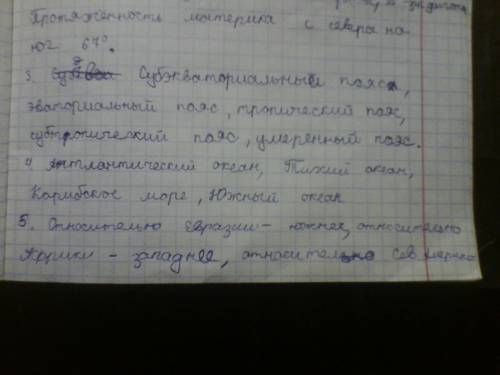 Протяжённость материка с севера на
юг 67°.
3. Субэкваториальный пояс,
эваториальный пояс, тропический пояс,
субтропический пояс, умеренный пояс.
4. Антлантический океан, Тихий океан,
Карибское море, Южный океан
5. Относительно Евразии - южнее, относительно
Африки - западнее, относительно Сев